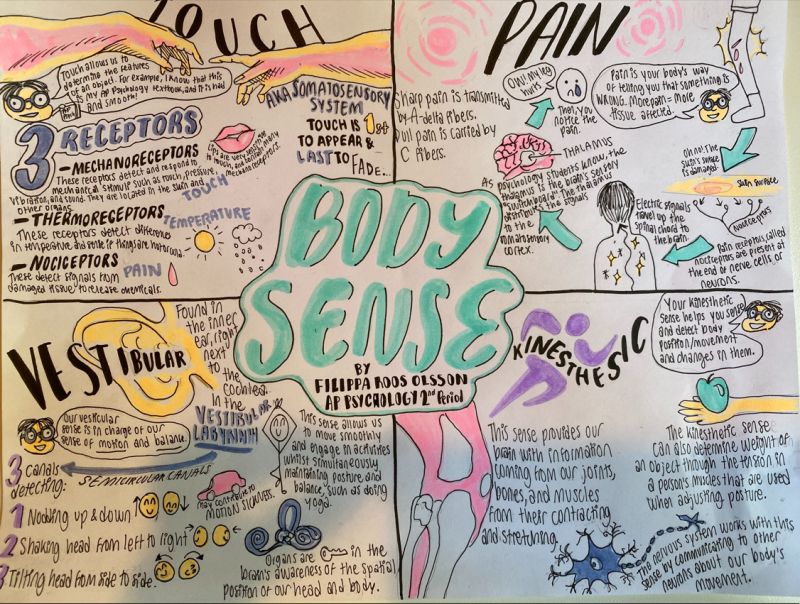 TOUCH
Touch allows us to
determine the features
of an object. For example, I know that this
is my AP Psychology textbook, and it is hard
and smooth!
AKA SOMATOSENSORY
SYSTEM
TOUCH IS 1st
TO APPEAR &
LAST TO FADE...
3 RECEPTORS
– MECHANORECEPTORS
These receptors detect and respond to
mechanical stimuli such as touch, pressure,
vibration, and sound. They are located in the skin and
other organs.
TOUCH
Lips are very
to touch, and contain many
mechanoreceptors.
– THERMORECEPTORS
TEMPERATURE
These receptors detect difference
in temperature and sense if things are hot or cold.
– NOCICEPTORS
These detect signals from PAIN
damaged tissue to release chemicals.
PAIN
Sharp pain is transmitted
by A-delta fibers.
Dull pain is carried by
C fibers.
Ow! My leg
hurts
Then, you
notice the
pain.
Pain is your body's way
of telling you that something is
WRONG. More pain = more
tissue affected.
THALAMUS
As psychology students know, the
thalamus is the brain's sensory
"switchboard". The thalamus
distributes the signals
to the
somatosensory
cortex.
Oh no! The
skin's surface
is damaged.
Skin Surface
Nociceptors
Electric signals
travel up the
spinal chord to
the brain.
Pain receptors, called
nociceptors are present at
the end of nerve cells, or
neurons.
BODY
SENSE
BY
FILIPPA ROOS OLSSON
AP PSYCHOLOGY 2nd Period
VESTIBULAR
Found in
the inner
ear, right
next
to the
cochlea.
In the
VESTIBULAR
LABYRINTH
Our vestibular
sense is in charge of our
sense of motion and balance.
3 canals
detecting:
SEMICIRCULAR CANALS
1 Nodding up & down
2 Shaking head from left to right
3 Tilting head from side to side.
may contribute to
MOTION SICKNESS.
This sense allows us
to move smoothly
and engage in activities
whilst simultaneously
maintaining posture and
balance, such as doing
yoga.
Organs are in the
brain's awareness of the spatial
position of our head and body.
KINESTHESIC
Your kinesthetic
sense helps you sense
and detect body
position/movement
and changes in them.
This sense provides our
brain with information
coming from our joints,
bones, and muscles
from their contracting
and stretching.
The kinesthetic sense
can also determine weight of
an object through the tension in
a person's muscles that are used
when adjusting posture.
The nervous system works with this
sense by communicating to other
neurons about our body's
movement.